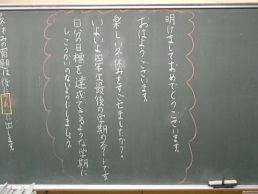 明けましておめでとうございます。
おはようございます。
楽しい冬休みをすごせましたか？
いよいよ四年生最後の学期のスタートです
自分の目標を達成できるような学期に
しっかりがんばりましょう
冬休みの宿題は後で出します。